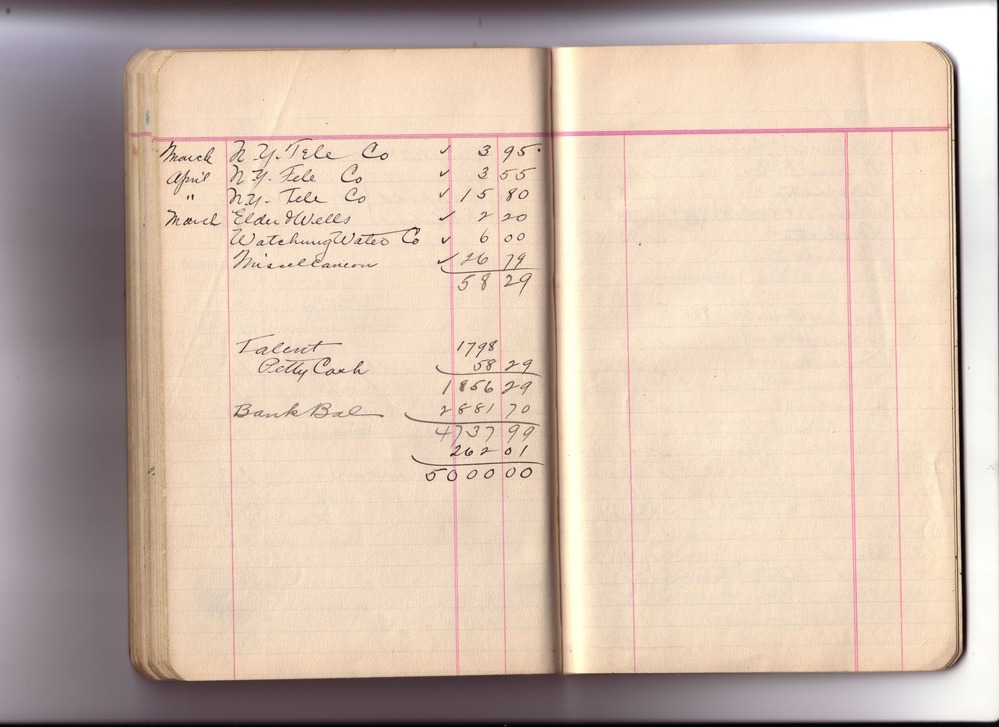 March N.Y. Tele Co ✓ 3 95
April N.Y. Tele Co ✓ 3 55
" N.Y. Tele Co ✓ 15 80
March Elder & Wells ✓ 2 20
Watchung Water Co ✓ 6 00
Miscelcaneon ✓ 26 79
58 29
Talent 1798
Petty Cash 58 29
1856 29
Bank Bal 2881 70
4737 99
262 01
5000 00